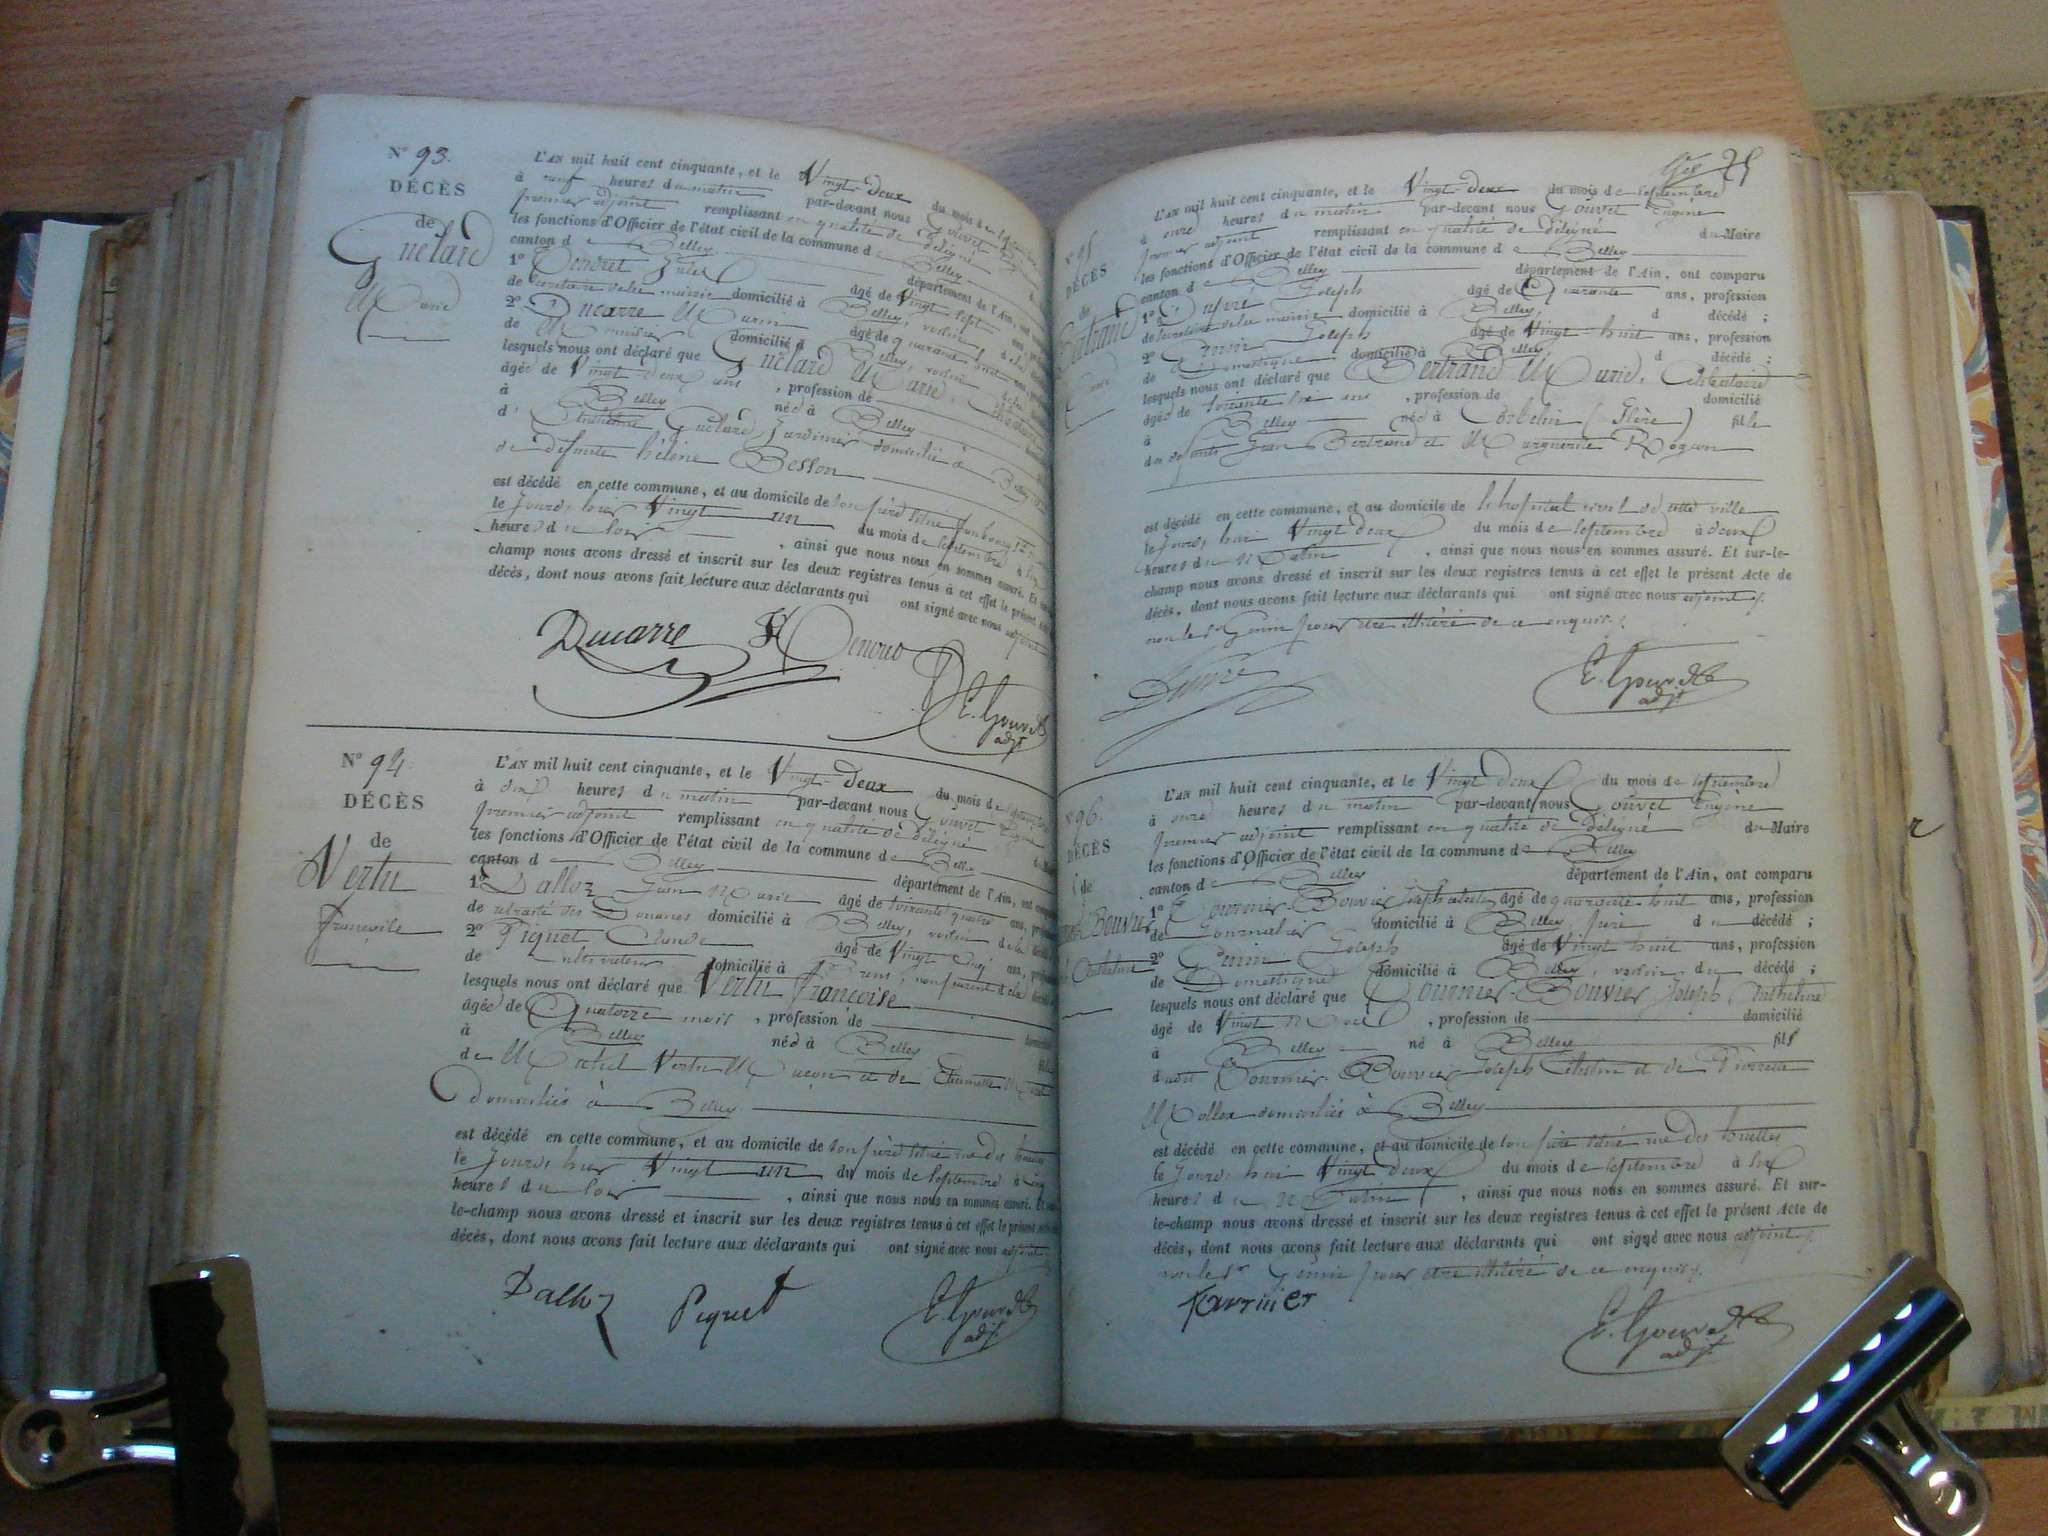 N° 93.
DÉCÈS
de
Guélard
Marie
L'AN mil huit cent cinquante, et le Vingt-deux du mois de
à neuf heures du matin par-devant nous Gouvet
premier adjoint remplissant en qualité de Délégué
les fonctions d'Officier de l'état civil de la commune de Belley
canton de Belley département de l'Ain, ont
1° Jules âgé de Vingt sept
de secrétaire de la mairie domicilié à Belley, voisin
2° Ducarre Marin âgé de quarante huit
de Menuisier domicilié à Belley, voisin
lesquels nous ont déclaré que Guélard Marie,
âgée de Vingt deux ans, profession de
à Belley née à Belley
d' Guélard Jardinier domicilié à Belley
de défunte hélène Besson
est décédé en cette commune, et au domicile de son père situé faubourg
le Jourd, hier Vingt un du mois de Septembre à
heures du soir, ainsi que nous nous en sommes assuré. Et
champ nous avons dressé et inscrit sur les deux registres tenus à cet effet le présent
décès, dont nous avons fait lecture aux déclarants qui ont signé avec nous adjoint
Ducarre
E. Gouvet
adjt
N° 94.
DÉCÈS
de
Vertu
françoise
L'AN mil huit cent cinquante, et le Vingt-deux du mois de
à dix heures du matin par-devant nous Gouvet
premier adjoint remplissant en qualité de Délégué
les fonctions d'Officier de l'état civil de la commune de Belley
canton de Belley département de l'Ain, ont
1° Dalloz Jean Marie âgé de soixante quatre ans,
de retraité des Douanes domicilié à Belley, voisin de la
2° Piquet Claude âgé de Vingt cinq ans,
de cultivateur domicilié à , non parent de la
lesquels nous ont déclaré que Vertu françoise
âgée de Quatorze mois, profession de
à Belley née à Belley
de Michel Vertu Maçon et de Etiennette
domiciliés à Belley
est décédé en cette commune, et au domicile de son père situé rue des
le Jourd, hier Vingt un du mois de Septembre à
heures du soir, ainsi que nous nous en sommes assuré. Et
le-champ nous avons dressé et inscrit sur les deux registres tenus à cet effet le présent
décès, dont nous avons fait lecture aux déclarants qui ont signé avec nous adjoint
Dalloz Piquet E. Gouvet
adjt
25
DÉCÈS
de
Bertrand
L'AN mil huit cent cinquante, et le Vingt-deux du mois de Septembre
à onze heures du matin par-devant nous Gouvet Eugène
premier adjoint remplissant en qualité de Délégué du Maire
les fonctions d'Officier de l'état civil de la commune de Belley
canton de Belley département de l'Ain, ont comparu
1° Joseph âgé de Quarante ans, profession
de secrétaire de la mairie domicilié à Belley, d décédé ;
2° Genin Joseph âgé de Vingt huit ans, profession
de Domestique domicilié à Belley d décédé ;
lesquels nous ont déclaré que Bertrand Marie, Célibataire
âgée de soixante ans, profession de domicilié
à Belley née à Corbelin (Isère) fille
des défunts Jean Bertrand et Marguerite
est décédé en cette commune, et au domicile de l'hospital civil de cette ville
le Jourd, hui Vingt deux du mois de Septembre à deux
heures du Matin, ainsi que nous nous en sommes assuré. Et sur-le-
champ nous avons dressé et inscrit sur les deux registres tenus à cet effet le présent Acte de
décès, dont nous avons fait lecture aux déclarants qui ont signé avec nous adjoint
non le sr Genin pour être illitéré de ce enquis.
E. Gouvet
adjt
N° 96.
DÉCÈS
de
Bouvier
L'AN mil huit cent cinquante, et le Vingt deux du mois de Septembre
à onze heures du matin par-devant nous Gouvet Eugène
premier adjoint remplissant en qualité de Délégué du Maire
les fonctions d'Officier de l'état civil de la commune de Belley
canton de Belley département de l'Ain, ont comparu
1° Fournier-Bouvier Joseph âgé de quarante huit ans, profession
de Journalier domicilié à Belley père du décédé ;
2° Genin Joseph âgé de Vingt huit ans, profession
de Domestique domicilié à Belley, voisin du décédé ;
lesquels nous ont déclaré que Fournier-Bouvier Joseph Anthelme
âgé de Vingt Mois, profession de domicilié
à Belley né à Belley fils
dudit Fournier-Bouvier Joseph Célestin et de Pierrette
domiciliés à Belley
est décédé en cette commune, et au domicile de son père situé rue des
le Jourd, hui Vingt deux du mois de Septembre à six
heures du Matin, ainsi que nous nous en sommes assuré. Et sur-
le-champ nous avons dressé et inscrit sur les deux registres tenus à cet effet le présent Acte de
décès, dont nous avons fait lecture aux déclarants qui ont signé avec nous adjoint
non le sr Genin pour être illitéré de ce enquis.
E. Gouvet
adjt